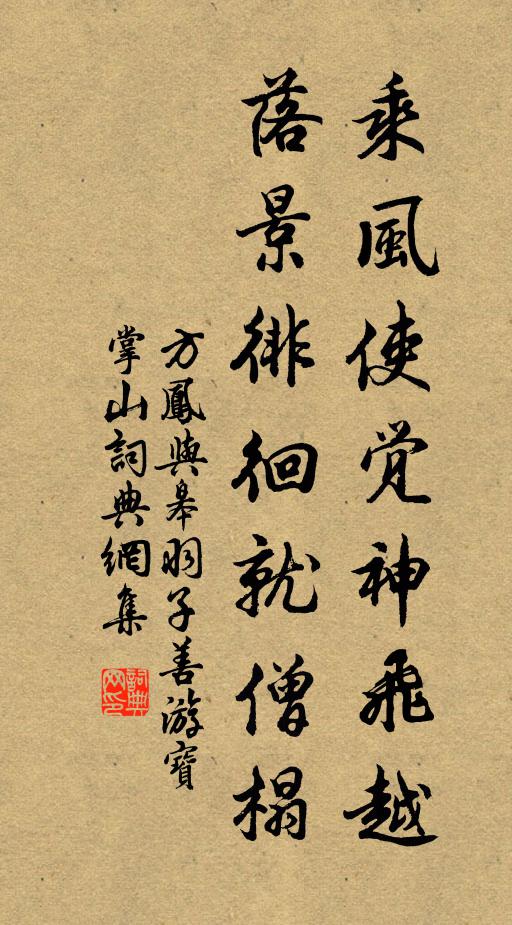 乘風使覺神飛越
落景徘徊就僧榻
方鳳與皋羽子善游寶
掌山詞典網集
詞典网印